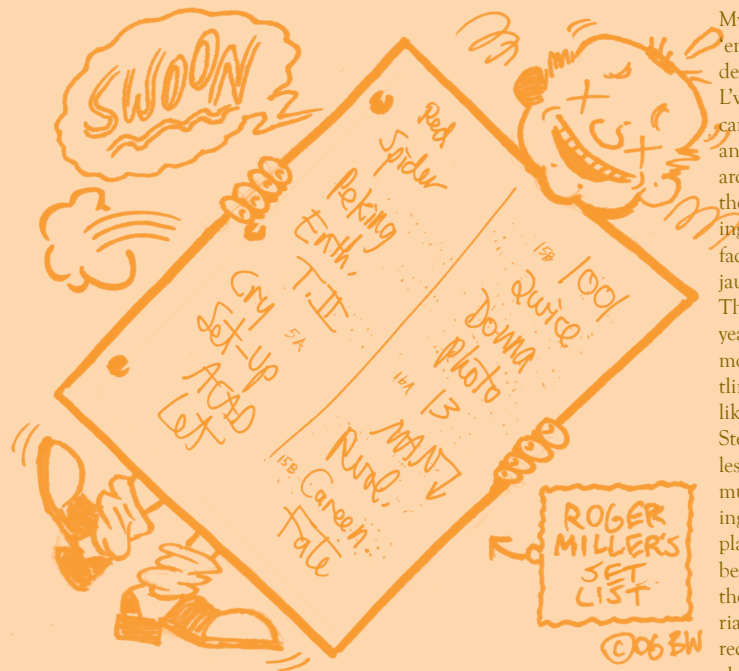 SWOON
Red
Spider
Peking
Enth.
T.II
Cry
Set-up 5A
ACAD
Let
15B 1001
2wice
Donna
Photo
16A 13
MAN
Rival.
15B Careen.
Fate
ROGER
MILLER'S
SET
LIST
©06 BW
My
'en
de
L'v
can
an
arc
the
ing
fac
jau
Th
yea
mo
tlin
lik
Ste
les
mu
ing
pla
be
the
ria
rec